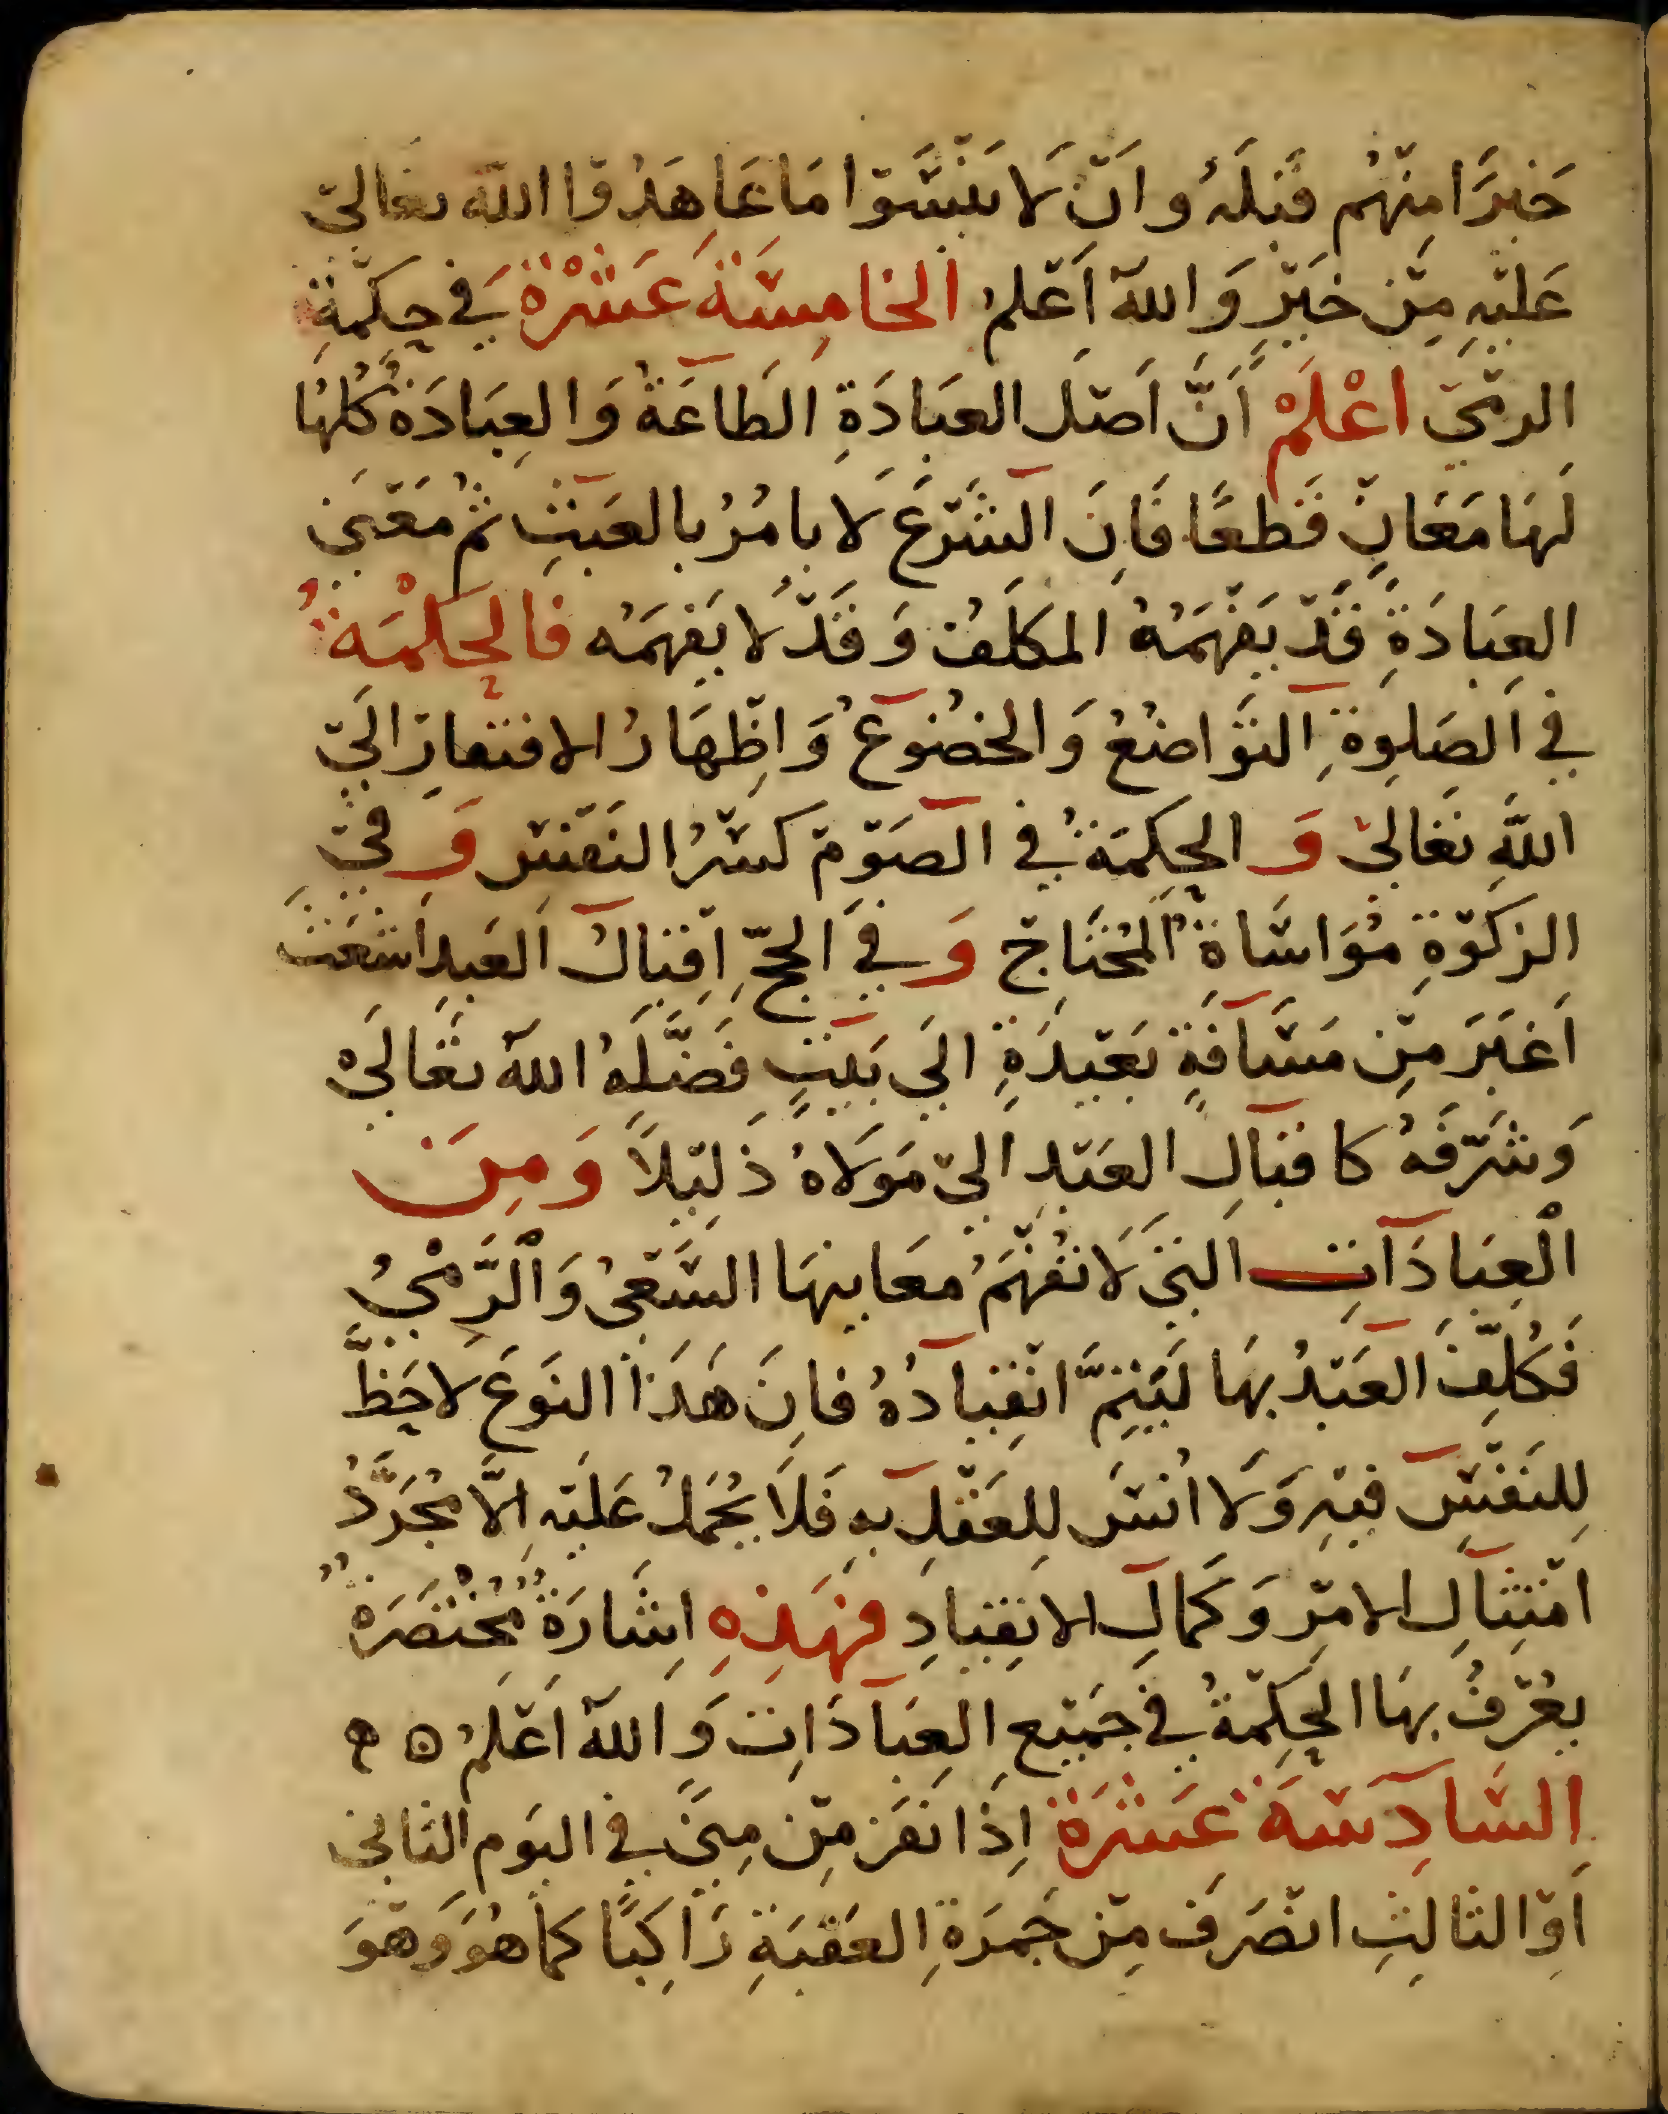 خَيْرًا مِنْهُمْ قَبْلَهُ وَاَنْ لَا يَنْسَوْا مَا عَاهَدُوا اللّٰهَ تَعَالَى
عَلَيْهِ مِنْ خَيْرٍ وَاللّٰهُ اَعْلَمُ الخَامِسَةَ عَشْرَةَ فِي حِكْمَةِ
الرَّمْيِ اعْلَمْ أَنَّ اَصْلَ العِبَادَةِ الطَّاعَةُ وَالعِبَادَةُ كُلُّهَا
لَهَا مَعَانٍ قَطْعًا فَاِنَّ الشَّرْعَ لَا يَامُرُ بِالعَبَثِ ثُمَّ مَعْنَى
العِبَادَةِ قَدْ يَفْهَمُهُ المُكَلَّفُ وَقَدْ لَا يَفْهَمُه فَالحِكْمَةُ
فِي الصَّلٰوةِ التَّوَاضُعُ وَالخُضُوعُ وَاِظْهَارُ الافْتِقَارِ اِلَى
اللّٰهِ تَعَالَى وَالحِكْمَةُ فِي الصَّوْمِ كَسْرُ النَفْسِ وَفِي
الزَّكٰوةِ مُوَاسَاةُ المُحْتَاجِ وَفِي الحَجِّ اِقْبَالُ العَبْدِ اَشْعَثَ
اَغْبَرَ مِنْ مَسَافَةٍ بَعِيْدَةٍ اِلَى بَيْتٍ فَضَّلَهُ اللّٰهُ تَعَالَى
وَشَرَّفَهُ كَاقْبَالِ العَبْدِ اِلَى مَوْلَاهُ ذَلِيْلًا وَمِنَ
العِبَادَاتِ الَّتِي لَا تُفْهَمُ مَعَانِيهَا السَّعْيُ وَالرَّمْيُ
فَكُلِّفَ العَبْدُ بِهَا لِيَتِمَّ انْقِيَادُهُ فَاِنَّ هَذَا النَوْعَ لَا حَظَّ
لِلنَفْسِ فِيْهِ وَلَا اُنْسَ لِلعَقْلِ بِهِ فَلَا يُحْمَلُ عَلَيْهِ اِلَّا مُجَرَّدُ
امْتِثَالِ الامْرِ وَكَمَالِ الانْقِيَادِ فَهَذِهِ اِشَارَةٌ مُخْتَصَرَةٌ
يُعْرَفُ بِهَا الحِكْمَةُ فِي جَمِيْعِ العِبَادَاتِ وَاللّٰهُ اَعْلَمُ ۝
السَّادِسَةَ عَشْرَةَ اِذَا نَفَرَ مِنْ مِنًى فِي اليَوْمِ الثَانِي
اَوِ الثَالِثِ انْصَرَفَ مِنْ جَمْرَةِ العَقَبَةِ رَاكِبًا كَمَا هُوَ وَهُوَ